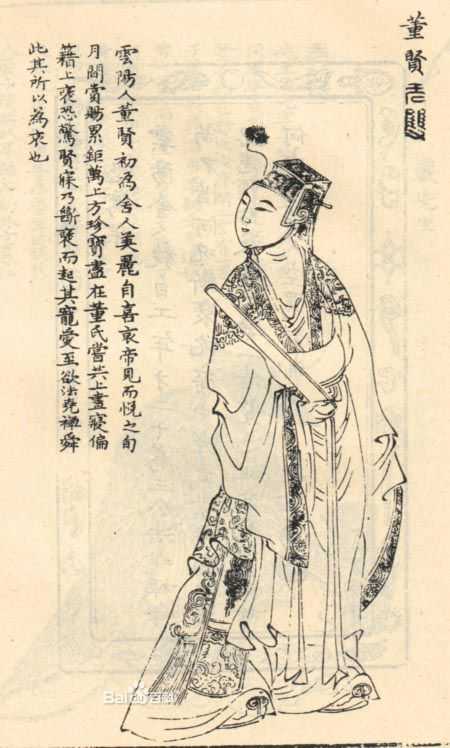 董賢
雲陽人董賢初為舍人美麗自喜哀帝見而悅之旬
月間賞賜累鉅萬上方珍寶盡在董氏嘗共上晝寢偏
籍上褏恐驚賢寐乃斷褏而起其寵愛至欲法堯禪舜
此其所以為哀也
Bai百科